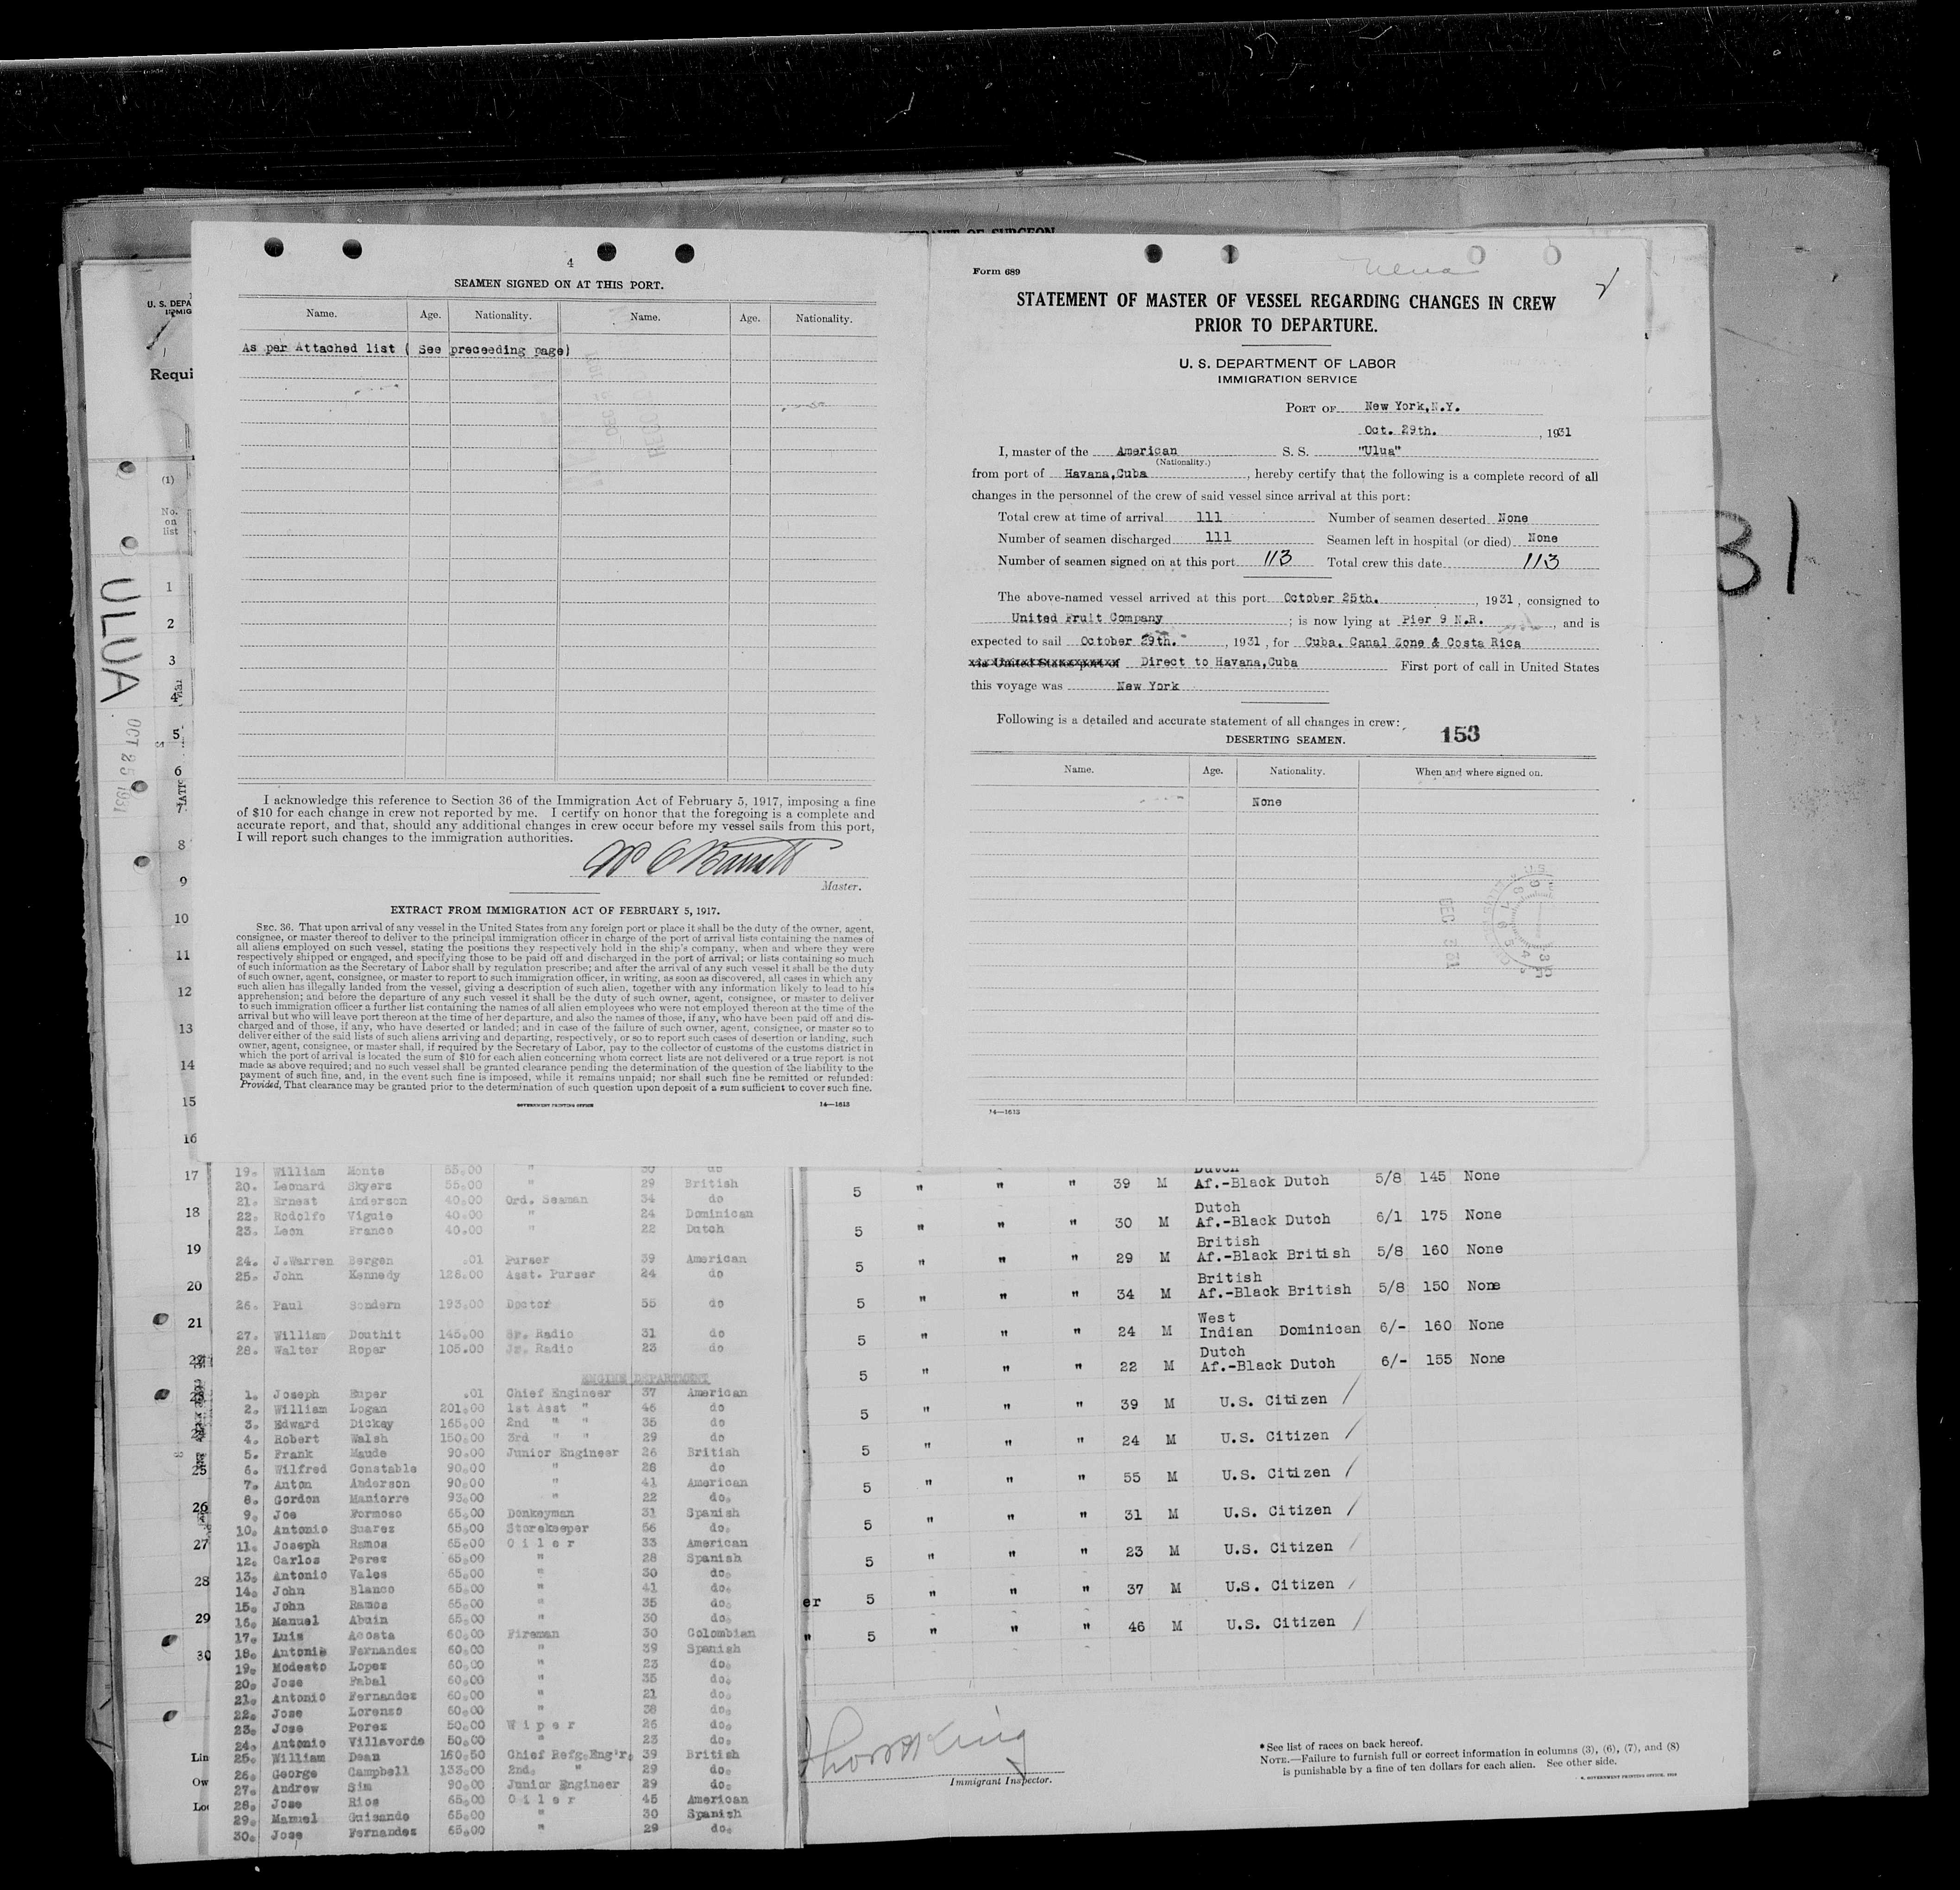 4
SEAMEN SIGNED ON AT THIS PORT.
Name. Age. Nationality. Name. Age. Nationality.
As per Attached list ( See preceeding page)
I acknowledge this reference to Section 36 of the Immigration Act of February 5, 1917, imposing a fine
of $10 for each change in crew not reported by me. I certify on honor that the foregoing is a complete and
accurate report, and that, should any additional changes in crew occur before my vessel sails from this port,
I will report such changes to the immigration authorities.
Master.
EXTRACT FROM IMMIGRATION ACT OF FEBRUARY 5, 1917.
SEC. 36. That upon arrival of any vessel in the United States from any foreign port or place it shall be the duty of the owner, agent,
consignee, or master thereof to deliver to the principal immigration officer in charge of the port of arrival lists containing the names of
all aliens employed on such vessel, stating the positions they respectively hold in the ship's company, when and where they were
respectively shipped or engaged, and specifying those to be paid off and discharged in the port of arrival; or lists containing so much
of such information as the Secretary of Labor shall by regulation prescribe; and after the arrival of any such vessel it shall be the duty
of such owner, agent, consignee, or master to report to such immigration officer, in writing, as soon as discovered, all cases in which any
such alien has illegally landed from the vessel, giving a description of such alien, together with any information likely to lead to his
apprehension; and before the departure of any such vessel it shall be the duty of such owner, agent, consignee, or master to deliver
to such immigration officer a further list containing the names of all alien employees who were not employed thereon at the time of the
arrival but who will leave port thereon at the time of her departure, and also the names of those, if any, who have been paid off and dis-
charged and of those, if any, who have deserted or landed; and in case of the failure of such owner, agent, consignee, or master so to
deliver either of the said lists of such aliens arriving and departing, respectively, or so to report such cases of desertion or landing, such
owner, agent, consignee, or master shall, if required by the Secretary of Labor, pay to the collector of customs of the customs district in
which the port of arrival is located the sum of $10 for each alien concerning whom correct lists are not delivered or a true report is not
made as above required; and no such vessel shall be granted clearance pending the determination of the question of the liability to the
payment of such fine, and, in the event such fine is imposed, while it remains unpaid; nor shall such fine be remitted or refunded:
Provided, That clearance may be granted prior to the determination of such question upon deposit of a sum sufficient to cover such fine.
GOVERNMENT PRINTING OFFICE 14—1613
Form 689
Ulua
STATEMENT OF MASTER OF VESSEL REGARDING CHANGES IN CREW
PRIOR TO DEPARTURE.
U. S. DEPARTMENT OF LABOR
IMMIGRATION SERVICE
PORT OF New York,N.Y.
Oct. 29th. , 1931
I, master of the American S. S. "Ulua"
(Nationality.)
from port of Havana,Cuba , hereby certify that the following is a complete record of all
changes in the personnel of the crew of said vessel since arrival at this port:
Total crew at time of arrival 111 Number of seamen deserted None
Number of seamen discharged 111 Seamen left in hospital (or died) None
Number of seamen signed on at this port 113 Total crew this date 113
The above-named vessel arrived at this port October 25th. , 1931 , consigned to
United Fruit Company ; is now lying at Pier 9 N.R. , and is
expected to sail October 29th. , 1931 , for Cuba, Canal Zone & Costa Rica
Direct to Havana,Cuba First port of call in United States
this voyage was New York
Following is a detailed and accurate statement of all changes in crew:
153
DESERTING SEAMEN.
Name. Age. Nationality. When and where signed on.
None
DEC 3 31
14—1613
31
U. S. DEPA
IMMIG
Requi
(1)
No.
on
list
ULUA
OCT 25 1931
1
2
3
4
5
6
7
8
9
10
11
12
13
14
15
16
17
18
19
20
21
25
26
27
28
29
30
19. William Monte 55.00 " 30 do
20. Leonard Skyers 55.00 " 29 British
21. Ernest Anderson 40.00 Ord. Seaman 34 do
22. Rodolfo Viguie 40.00 " 24 Dominican
23. Leon Franco 40.00 " 22 Dutch
24. J.Warren Bergen .01 Purser 39 American
25. John Kennedy 128.00 Asst. Purser 24 do
26. Paul Sondern 193.00 Doctor 55 do
27. William Douthit 145.00 Sr. Radio 31 do
28. Walter Roper 105.00 Jr. Radio 23 do
ENGINE DEPARTMENT
1. Joseph Euper .01 Chief Engineer 37 American
2. William Logan 201.00 1st Asst " 46 do
3. Edward Dickey 165.00 2nd " " 35 do
4. Robert Walsh 150.00 3rd " " 29 do
5. Frank Maude 90.00 Junior Engineer 26 British
6. Wilfred Constable 90.00 " 28 do
7. Anton Anderson 90.00 " 41 American
8. Gordon Manierre 93.00 " 22 do.
9. Joe Formoso 65.00 Donkeyman 31 Spanish
10. Antonio Suarez 65.00 Storekeeper 56 do.
11. Joseph Ramos 65.00 O i l e r 33 American
12. Carlos Perez 65.00 " 28 Spanish
13. Antonio Vales 65.00 " 30 do.
14. John Blanco 65.00 " 41 do.
15. John Ramos 65.00 " 35 do.
16. Manuel Abuin 65.00 " 30 do.
17. Luis Acosta 60.00 Fireman 30 Colombian
18. Antonio Fernandez 60.00 " 39 Spanish
19. Modesto Lopez 60.00 " 23 do.
20. Jose Fabal 60.00 " 35 do.
21. Antonio Fernandez 60.00 " 21 do.
22. Jose Lorenzo 60.00 " 38 do.
23. Jose Perez 50.00 W i p e r 26 do.
24. Antonio Villaverde 50.00 " 23 do.
25. William Dean 160.50 Chief Refg.Eng'r. 39 British
26. George Campbell 133.00 2nd. " 29 do.
27. Andrew Sim 90.00 Junior Engineer 29 do.
28. Jose Rios 65.00 O i l e r 45 American
29. Manuel Guisando 65.00 " 30 Spanish
30. Jose Fernandez 65.00 " 29 do.
Lin
Ow
Loc
Dutch
5 " " " 39 M Af.-Black Dutch 5/8 145 None
Dutch
5 " " " 30 M Af.-Black Dutch 6/1 175 None
British
5 " " " 29 M Af.-Black British 5/8 160 None
British
5 " " " 34 M Af.-Black British 5/8 150 None
West
5 " " " 24 M Indian Dominican 6/- 160 None
Dutch
5 " " " 22 M Af.-Black Dutch 6/- 155 None
5 " " " 39 M U.S. Citizen /
5 " " " 24 M U.S. Citizen /
5 " " " 55 M U.S. Citizen /
5 " " " 31 M U.S. Citizen /
5 " " " 23 M U.S. Citizen /
er 5 " " " 37 M U.S. Citizen /
" 5 " " " 46 M U.S. Citizen /
Immigrant Inspector.
*See list of races on back hereof.
NOTE.—Failure to furnish full or correct information in columns (3), (6), (7), and (8)
is punishable by a fine of ten dollars for each alien. See other side.